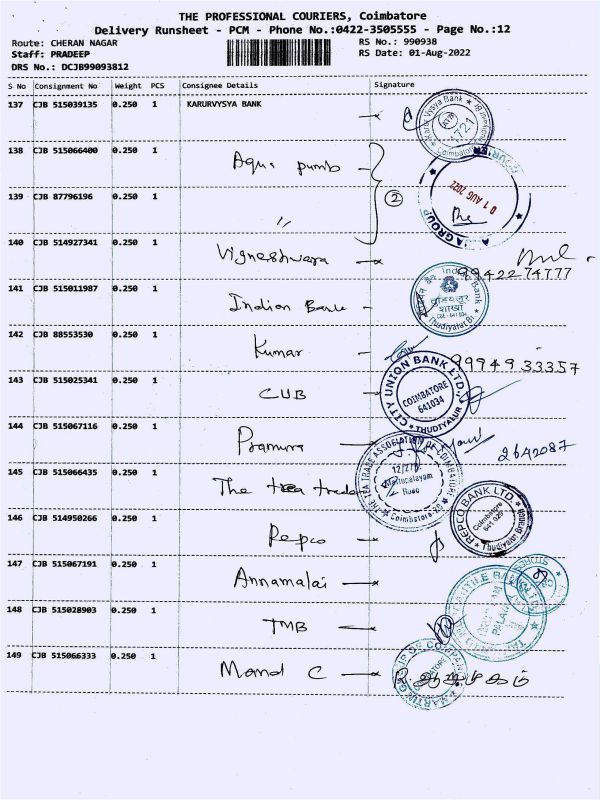 THE PROFESSIONAL COURIERS, Coimbatore
Delivery Runsheet - PCM - Phone No.:0422-3505555 - Page No.:12
Route: CHERAN NAGAR RS No.: 990938
Staff: PRADEEP RS Date: 01-Aug-2022
DRS No.: DCJB99093812
S No Consignment No Weight PCS Consignee Details Signature
137 CJB 515039135 0.250 1 KARURVYSYA BANK
Karur Vysya Bank
1721
Coimbatore
138 CJB 515066400 0.250 1 Aqua pumb
01 AUG 2022
GROUP
139 CJB 87796196 0.250 1 〃 2
140 CJB 514927341 0.250 1 Vigneshwara
9942274777
141 CJB 515011987 0.250 1 Indian Bank
Indian Bank
शाखा
Thudiyalur Br
142 CJB 88553530 0.250 1 Kumar
9994933357
143 CJB 515025341 0.250 1 CUB
CITY UNION BANK LTD.,
COIMBATORE
641034
THUDIYALUR
144 CJB 515067116 0.250 1 Pramura
2642087
145 CJB 515066435 0.250 1 The tea trade
THE TEA TRADE ASSOCIATION OF COIMBATORE
Road
Coimbatore-29
146 CJB 514950266 0.250 1 Repco
REPCO BANK LTD.
Coimbatore
641 029
Thudiyalur Branch
147 CJB 515067191 0.250 1 Annamalai
148 CJB 515028903 0.250 1 TMB
149 CJB 515066333 0.250 1 Mand C
R. ஆறுமுகம்